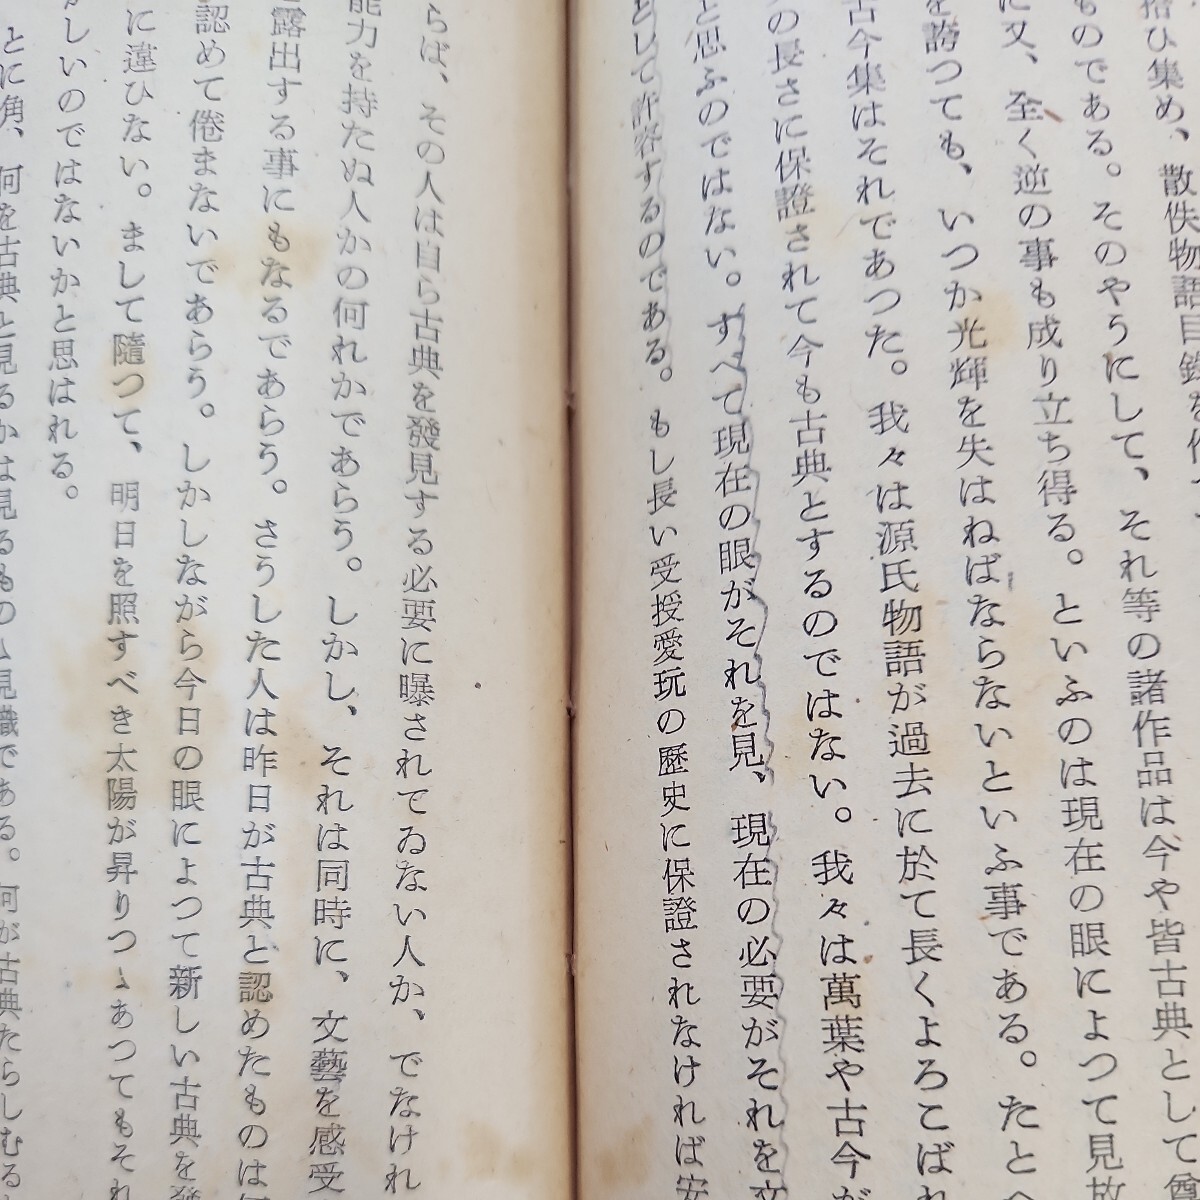 拾ひ集め、散佚物語目錄を作
ものである。そのやうにして、それ等の諸作品は今や皆古典として
に又、至く逆の事も成り立ち得る。といふのは現在の眼によつて見故
を誇つても、いつか光輝を失はねばならないといふ事である。たと
古今集はそれであつた。我々は源氏物語が過去に於て長くよろこばれ
の長さに保證されて今も古典とするのではない。我々は萬葉や古今が
と思ふのではない。すべて現在の眼がそれを見、現在の必要がそれを文
として許容するのである。もし長い受授愛玩の歷史に保證されなければ安
らば、その人は自ら古典を發見する必要に曝されてゐない人か、でなけれ
能力を持たぬ人かの何れかであらう。しかし、それは同時に、文藝を感受
露出する事にもなるであらう。さうした人は昨日が古典と認めたものは
認めて倦まないであらう。しかしながら今日の眼によつて新しい古典を發
に違ひない。まして隨つて、明日を照すべき太陽が昇りつゝあつてもそれ
しいのではないかと思はれる。
とに角、何を古典と見るかは見るものゝ見識である。何が古典たらしむる